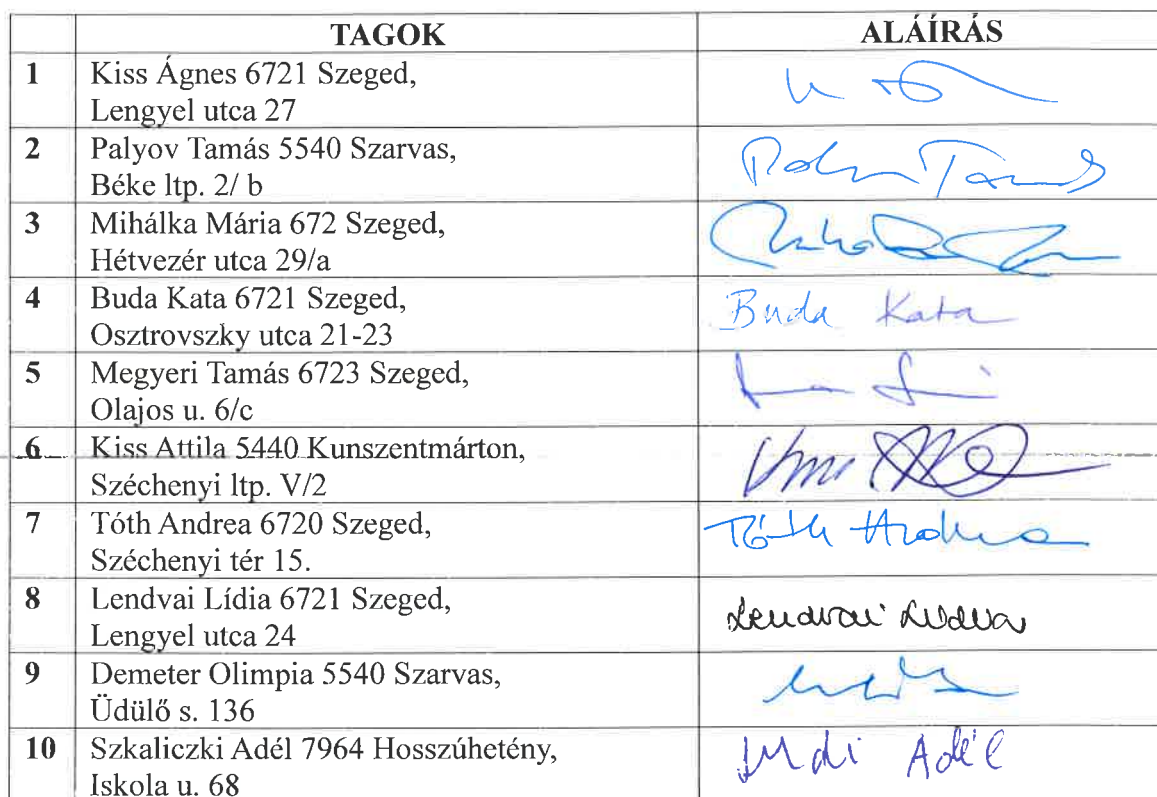 TAGOK ALÁÍRÁS
1 Kiss Ágnes 6721 Szeged,
Lengyel utca 27
2 Palyov Tamás 5540 Szarvas,
Béke ltp. 2/ b
Tamás
3 Mihálka Mária 672 Szeged,
Hétvezér utca 29/a
4 Buda Kata 6721 Szeged,
Osztrovszky utca 21-23
Buda Kata
5 Megyeri Tamás 6723 Szeged,
Olajos u. 6/c
6 Kiss Attila 5440 Kunszentmárton,
Széchenyi ltp. V/2
7 Tóth Andrea 6720 Szeged,
Széchenyi tér 15.
Tóth Andrea
8 Lendvai Lídia 6721 Szeged,
Lengyel utca 24
Lendvai Lídia
9 Demeter Olimpia 5540 Szarvas,
Üdülő s. 136
10 Szkaliczki Adél 7964 Hosszúhetény,
Iskola u. 68
Adél